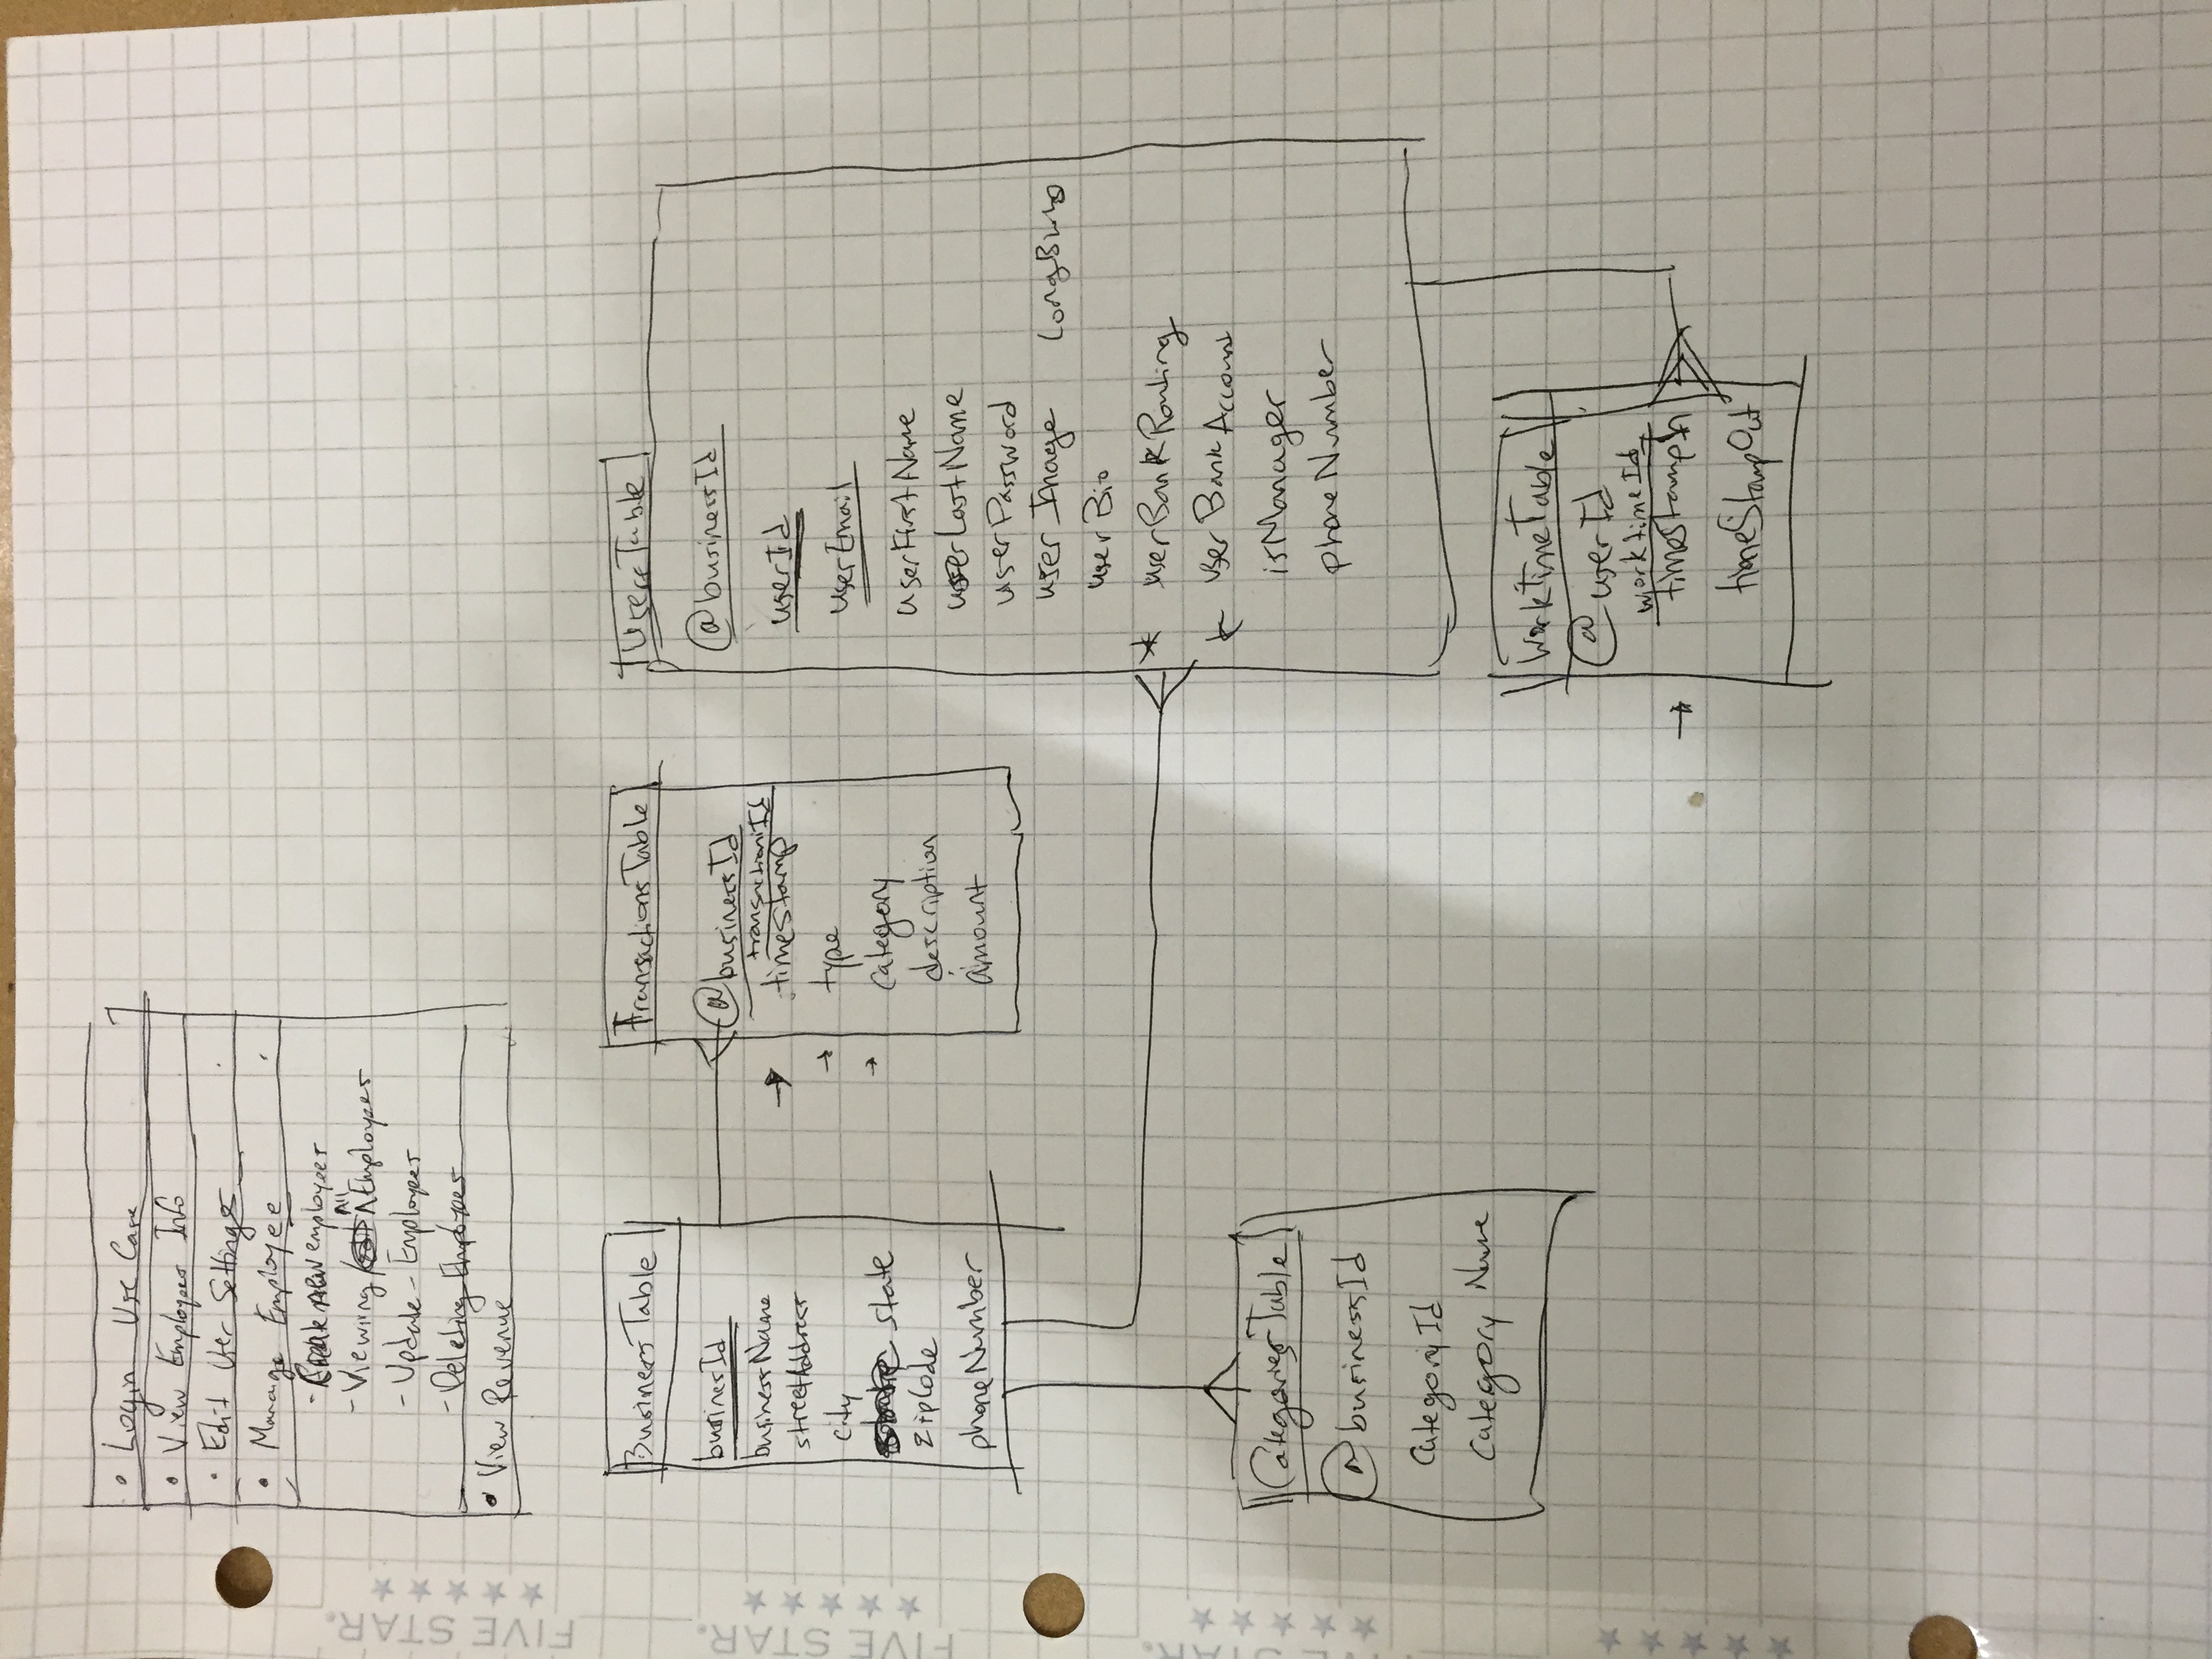 • Login Use Case
• View Employees Info
• Edit User Settings
• Manage Employee
- Create new employees
- Viewing All Employees
- Update - Employees
- Deleting Employees
• View Revenue
BusinessTable
businessId
businessName
streetAddress
city
state
zipCode
phoneNumber
TransactionsTable
@businessId
transactionId
timestamp
type
category
description
amount
UsersTable
@businessId
userId
userEmail
userFirstName
userLastName
userPassword
userImage
userBio
* userBankRouting
* userBankAccount
isManager
phoneNumber
CategoriesTable
@businessId
CategoryId
Category Name
WorkTimeTable
@userId
worktimeId
timestampIn
timeStampOut
FIVE STAR.
FIVE STAR.
STAR.